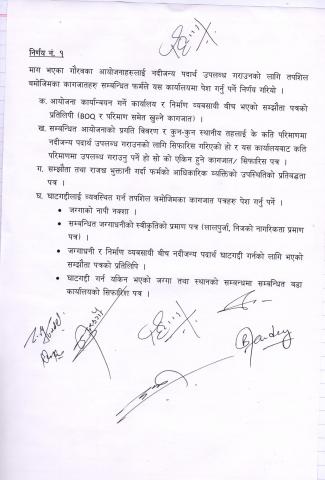 निर्णय नं. १
माग भएका गौरवका आयोजनाहरुलाई नदीजन्य पदार्थ उपलब्ध गराउनको लागि तपशिल
बमोजिमका कागजातहरु सम्बन्धित फर्मले यस कार्यालयमा पेश गर्नु पर्ने निर्णय गरियो ।
क. आयोजना कार्यान्वयन गर्ने कार्यालय र निर्माण व्यवसायी बीच भएको सम्झौता पत्रको
प्रतिलिपि (BOQ र परिमाण समेत खुल्ने कागजात) ।
ख. सम्बन्धित आयोजनाको प्रगति विवरण र कुन-कुन स्थानीय तहलाई के कति परिमाणमा
नदीजन्य पदार्थ उपलब्ध गराउनको लागि सिफारिस गरिएको हो र यस कार्यालयबाट कति
परिमाणमा उपलब्ध गराउनु पर्ने हो सो को एकिन हुने कागजात/ सिफारिस पत्र ।
ग. सम्झौता तथा राजश्व भुक्तानी गर्दा फर्मको आधिकारिक व्यक्तिको उपस्थितिको प्रतिबद्धता
पत्र ।
घ. घाटगद्दीलाई व्यवस्थित गर्न तपशिल बमोजिमका कागजात पत्रहरु पेश गर्नु पर्ने ।
• जग्गाको नापी नक्शा ।
• सम्बन्धित जग्गाधनीको स्वीकृतिको प्रमाण पत्र (लालपुर्जा, निजको नागरिकता प्रमाण
पत्र) ।
• जग्गाधनी र निर्माण व्यवसायी बीच नदीजन्य पदार्थ घाटगद्दी गर्नको लागि भएको
सम्झौता पत्रको प्रतिलिपि ।
• घाटगद्दी गर्न यकिन भएको जग्गा तथा स्थानको सम्बन्धमा सम्बन्धित वडा
कार्यालयको सिफारिश पत्र ।